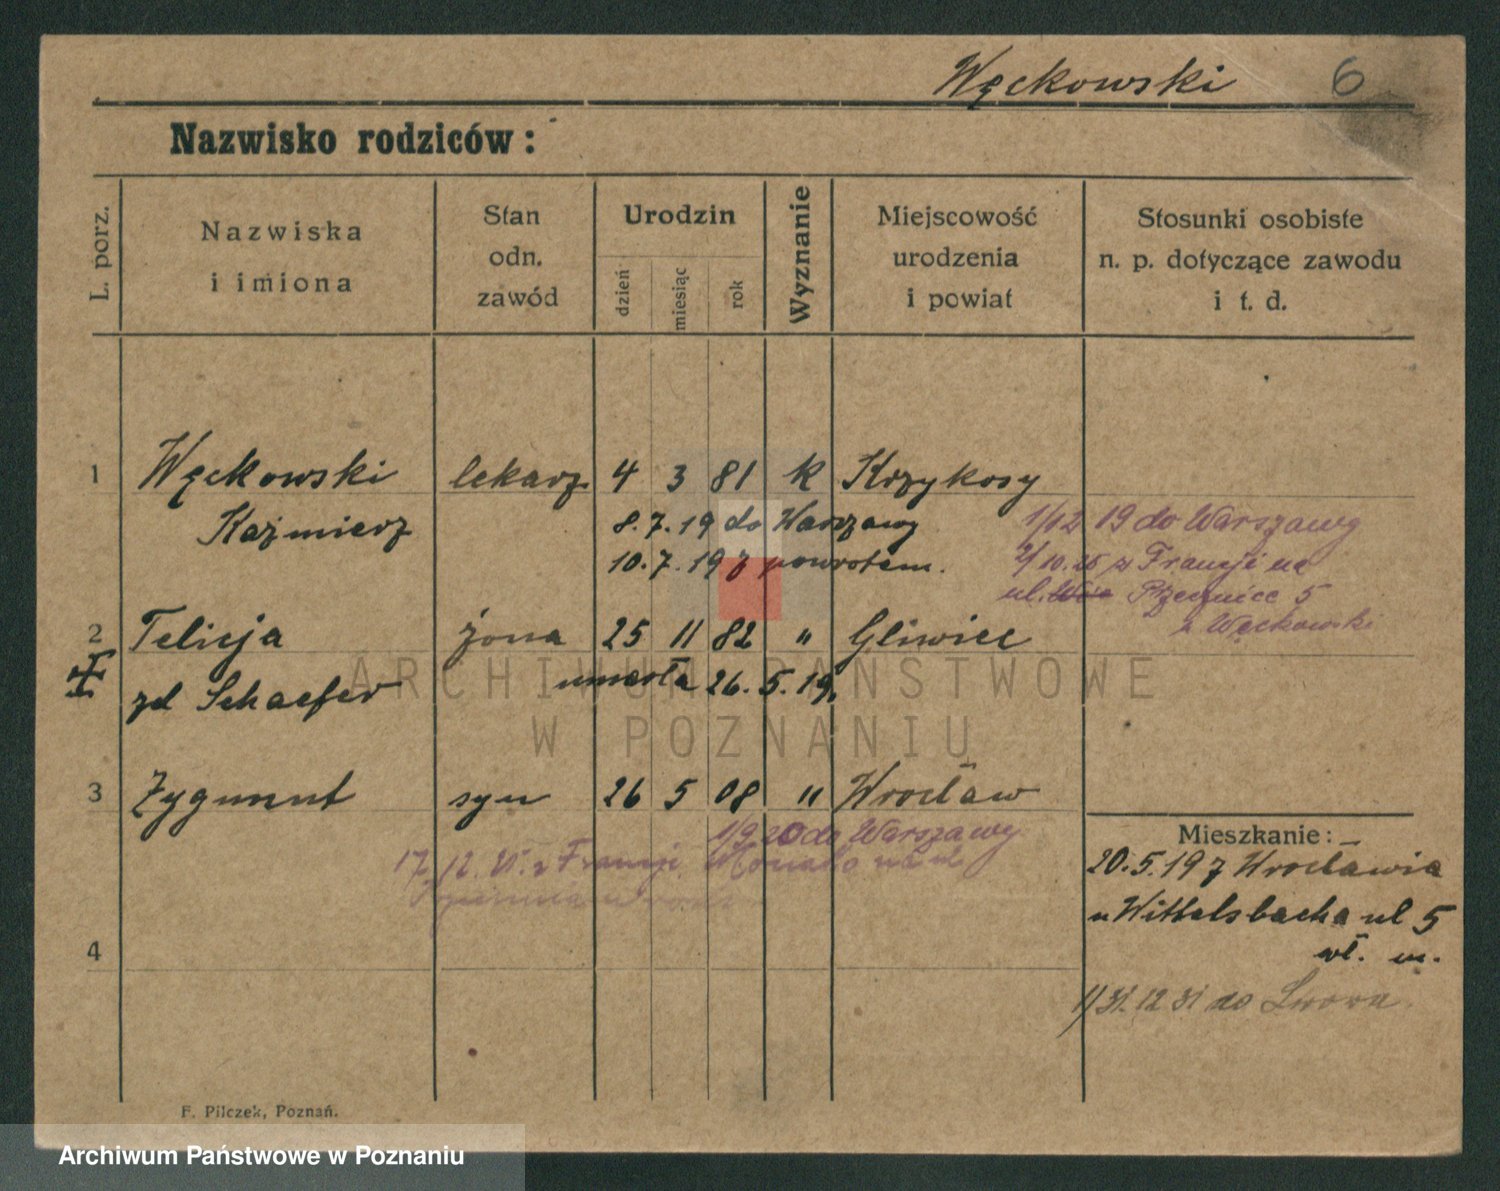 Węckowski 6
Nazwisko rodziców:
L. porz.
Nazwiska
i imiona
Stan
odn.
zawód
Urodzin
dzień
miesiąc
rok
Wyznanie
Miejscowość
urodzenia
i powiat
Stosunki osobiste
n. p. dotyczące zawodu
i t. d.
1 Węckowski lekarz 4 3 81 k Krzykosy
Kaźmierz 8.7.19 do Warszawy
10.7.19 z powrotem.
1/12 19 do Warszawy
2/10.26 z Francji na
ul. Pszennice 5
z Węckowski
2 Felicja żona 25 11 82 " Gliwice
zd Schaefer umarła 26.5.19.
3 Zygmunt syn 26 5 08 " Wrocław
1/9 20 do Warszawy
17.12. z Francji
4
Mieszkanie:
20.5.19 z Wrocławia
u Wittelsbacha ul 5
wł. m.
1/31.12 31 do Lwowa.
F. Pilczek, Poznań.
ARCHIWUM PAŃSTWOWE
W POZNANIU
Archiwum Państwowe w Poznaniu